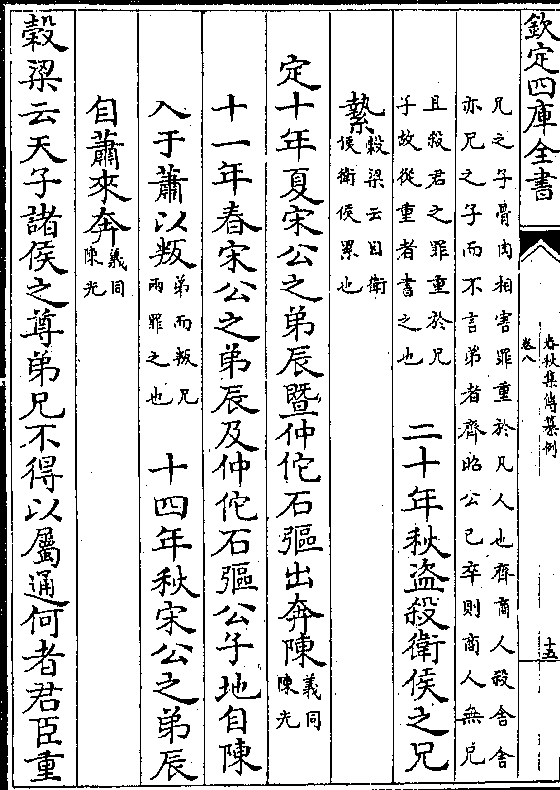 欽定四庫全書
春秋集傳纂例
卷八
十五
兄之子骨肉相害罪重於凡人也齊商人殺舍舍
亦兄之子而不言弟者齊昭公已卒則商人無兄
且殺君之罪重於兄
子故從重者書之也
二十年秋盗殺衛侯之兄
縶
穀梁云目衛
侯衛侯累也
定十年夏宋公之弟辰暨仲佗石彄出奔陳
義同
陳光
十一年春宋公之弟辰及仲佗石彄公子地自陳
入于蕭以叛
弟而叛兄
兩罪之也
十四年秋宋公之弟辰
自蕭來奔
義同
陳光
穀梁云天子諸侯之尊弟兄不得以屬通何者君臣重